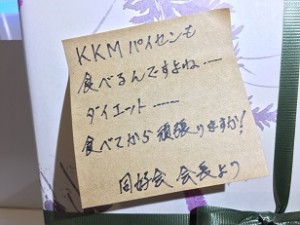 KKMパイセンも
食べるんですよね……
ダイエット……
食べてから頑張りますか!
同好会 会長より